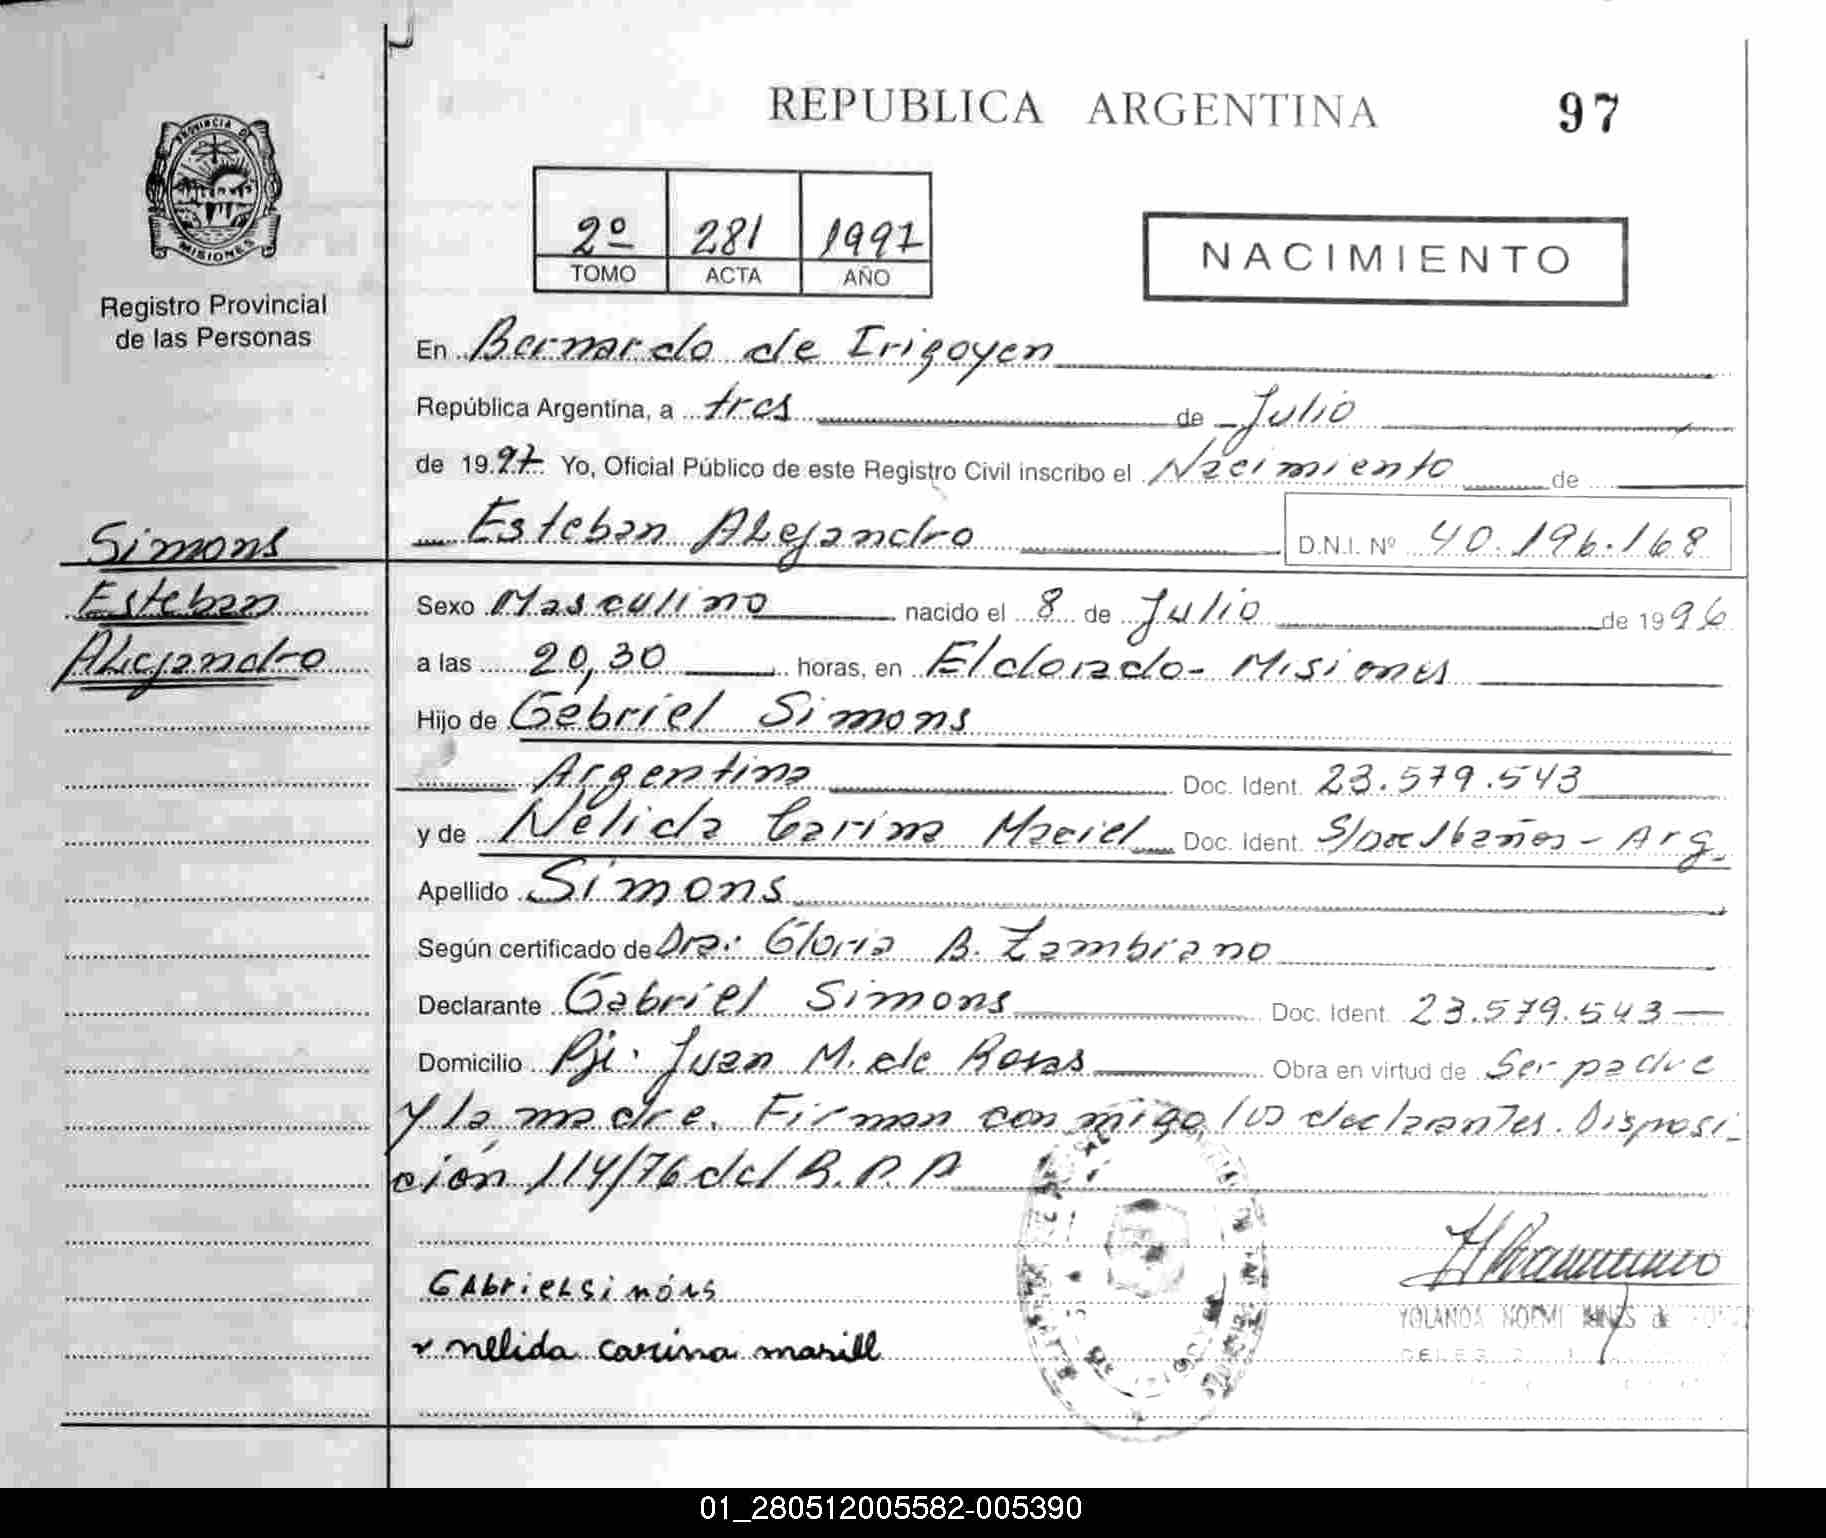 REPUBLICA ARGENTINA 97
PROVINCIA DE
MISIONES
Registro Provincial
de las Personas
2º 281 1997
TOMO ACTA AÑO
NACIMIENTO
En Bernardo de Irigoyen
República Argentina, a tres de Julio
de 1997 Yo, Oficial Público de este Registro Civil inscribo el Nacimiento de
Simons
Esteban
Alejandro
Esteban Alejandro D.N.I. Nº 40.196.168
Sexo Masculino nacido el 8 de Julio de 1996
a las 20,30 horas, en Eldorado - Misiones
Hijo de Gabriel Simons
Argentina Doc. Ident. 23.579.543
y de Nélida Carina Maciel Doc. Ident. S/Doc 16años - Arg.
Apellido Simons
Según certificado de Dra. Gloria B. Zambrano
Declarante Gabriel Simons Doc. Ident. 23.579.543
Domicilio Pje. Juan M. de Rosas Obra en virtud de Ser padre
y la madre. Firman con migo los declarantes. Disposi-
ción 114/76 del R.P.P
GAbriel simóns
nelida carina masill
YOLANDA NOEMI
01_280512005582-005390